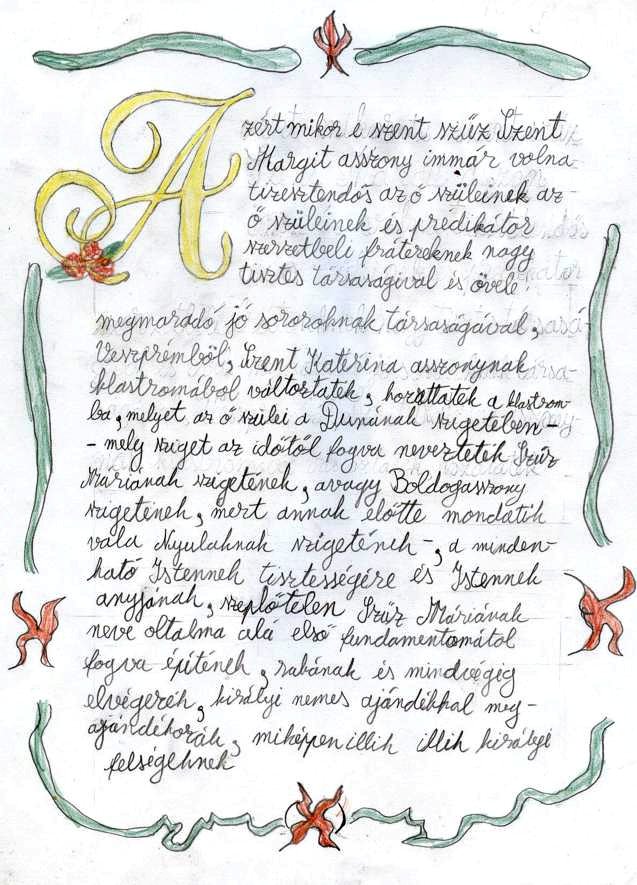 Azért mikor e szent szűz Szent
Margit asszony immár volna
tizesztendős az ő szüleinek az-
ő szüleinek és prédikátor
szerzetbeli frátereknek nagy
tisztes társaságival és övele
megmaradó jó sororoknak társaságával,
Veszprémből, Szent Katerina asszonynak
klastromából változtaték, hozattaték a klastrom-
ba, melyet az ő szülei a Dunának szigetében -
- mely sziget az időtől fogva nevezteték Szűz
Máriának szigetének, avagy Boldogasszony
szigetének, mert annak előtte mondatik
vala Nyulaknak szigetének -, a minden-
ható Istennek tisztességére és Istennek
anyjának, szeplőtelen Szűz Máriának
neve oltalma alá első fundamentomától
fogva építének, rabának és mindvégig
elvégezék, királyi nemes ajándékkal meg-
ajándékozák, miképpen illik illik királyi
felségeknek